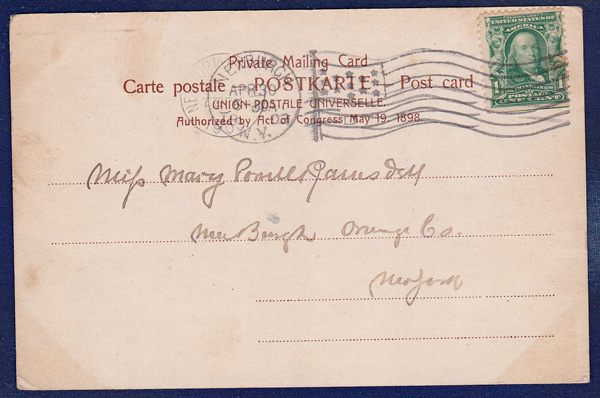 Private Mailing Card
Carte postale POSTKARTE Post card
UNION POSTALE UNIVERSELLE.
Authorized by Act of Congress May 19, 1898.
NEWBURGH
APR 30
N.Y.
UNITED STATES OF AMERICA
1 POSTAGE 1
ONE CENT
Miss Mary Powell Ramsdell
New Burgh Orange Co.
New York